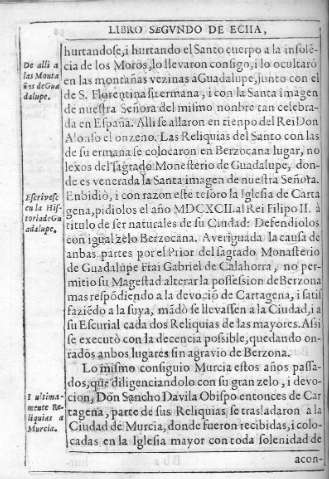 LIBRO SEGVNDO DE ECIIA,
De alli a
las Monta
ñas de Gua
dalupe.
hurtandose, i hurtando el Santo cuerpo a la insolẽ
cia de los Moros, lo llevaron consigo, i lo ocultarō
en las montañas vezinas a Guadalupe, junto con el
de S. Florentina su ermana, i con la Santa imagen
de nuestra Señora del mismo nonbre tan celebra-
da en España. Alli se allaron en tienpo del Rei Don
Alonso el onzeno. Las Reliquias del Santo con las
de su ermana se colocaron en Berzocana lugar, no
lexos del sagrado Monesterio de Guadalupe, donde
es venerada la Santa imagen de nuestra Señora.
Escrivese
en la His-
toria de Gu
adalupe.
Enbidiò, i con razon este tesoro la Iglesia de Carta
gena, pidiolos el año MDCXCII. al Rei Filipo II. à
titulo de ser naturales de su Ciudad: Defendiolos
con igual zelo Berzocana. Averiguada la causa de
anbas partes por el Prior del sagrado Monasterio
de Guadalupe Frai Gabriel de Calahorra, no per-
mitio su Magestad alterar la possession de Berzona
mas respōdiendo a la devociō de Cartagena, i satis
faziẽdo a la suya, mādò se llevassen a la Ciudad, i a
su Escurial cada dos Reliquias de las mayores. Assi
se executò con la decencia possible, quedando on-
rados anbos lugares sin agravio de Berzona.
I ultima-
mente Re-
liquias a
Murcia.
Lo mismo consiguio Murcia estos años passa-
dos, que diligenciandolo con su gran zelo, i devo-
cion, Don Sancho Davila Obispo entonces de Car
tagena, parte de sus Reliquias se trasladaron a la
Ciudad de Murcia, donde fueron recibidas, i colo-
cadas en la Iglesia mayor con toda solenidad de
acon-